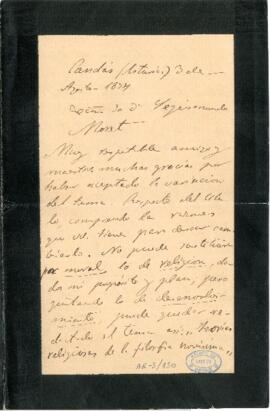 Candás (Asturias) 3 de
Agosto 1897
Sr. D. Segismundo
Moret
Muy respetable amigo y
maestro: muchas gracias por
haber aceptado la variacion
del tema. Respecto del
lo, comprendo las razones
que Vd. tiene para desear cam-
biarlo. No puede sustituirse
por moral lo de religión, da-
do mi propósito y plan, pero
quitando lo de desenvolvi-
miento, puede quedar re-
el tema así: "Teorías
religiosas de la filosofía novísima"
AR-3/130